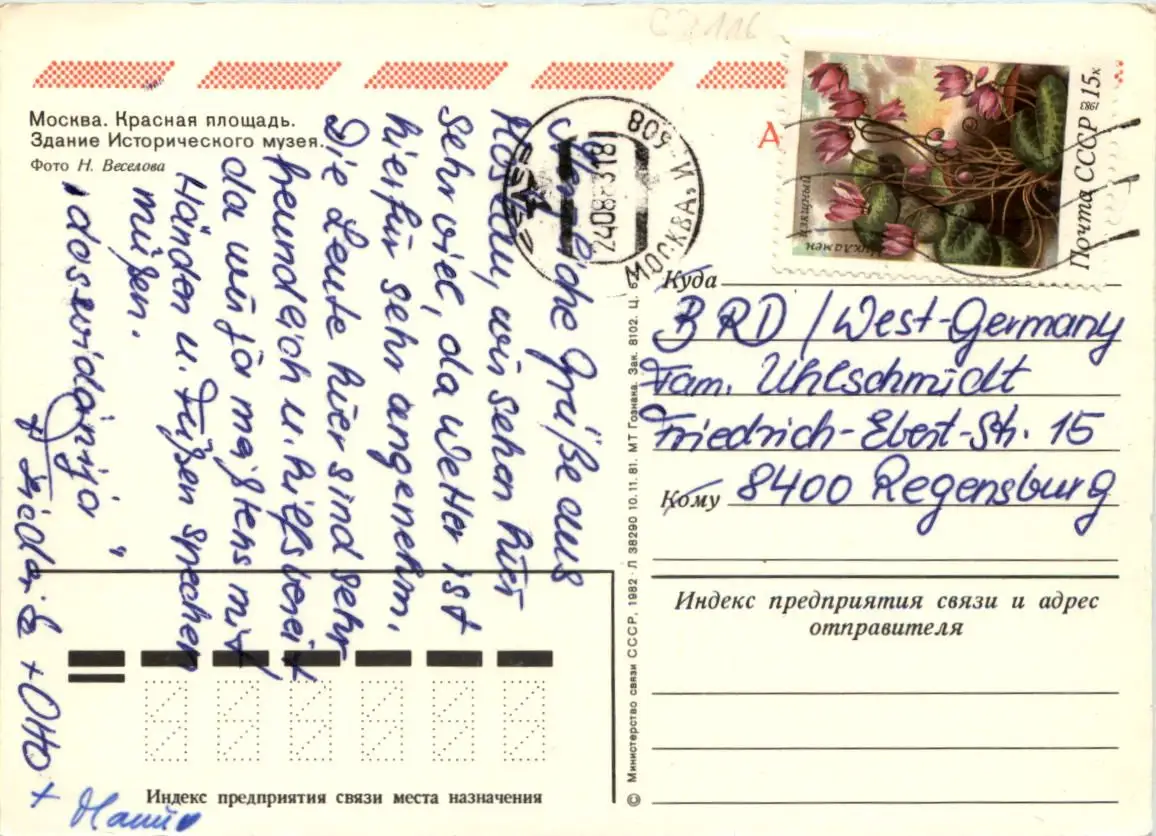 Москва. Красная площадь.
Здание Исторического музея.
Фото Н. Веселова
Grüße aus
Moskau, wir sehen hier
sehr viel, da Wetter ist
hierfür sehr angenehm.
Die Leute hier sind sehr
freundlich u. hilfsbereit
da wir ja meistens mit
Händen u. Füßen sprechen
müßen.
"doswidanija"
+ Otto +
МОСКВА
Почта СССР 15к
1983
Цикламен
изящный
Куда
BRD / West-Germany
Fam. Uhlschmidt
Friedrich-Ebert-Str. 15
Кому 8400 Regensburg
Индекс предприятия связи и адрес
отправителя
Индекс предприятия связи места назначения
© Министерство связи СССР, 1982. Л 38290 10.11.81. МТ Гознака. Зак. 8102. Ц.